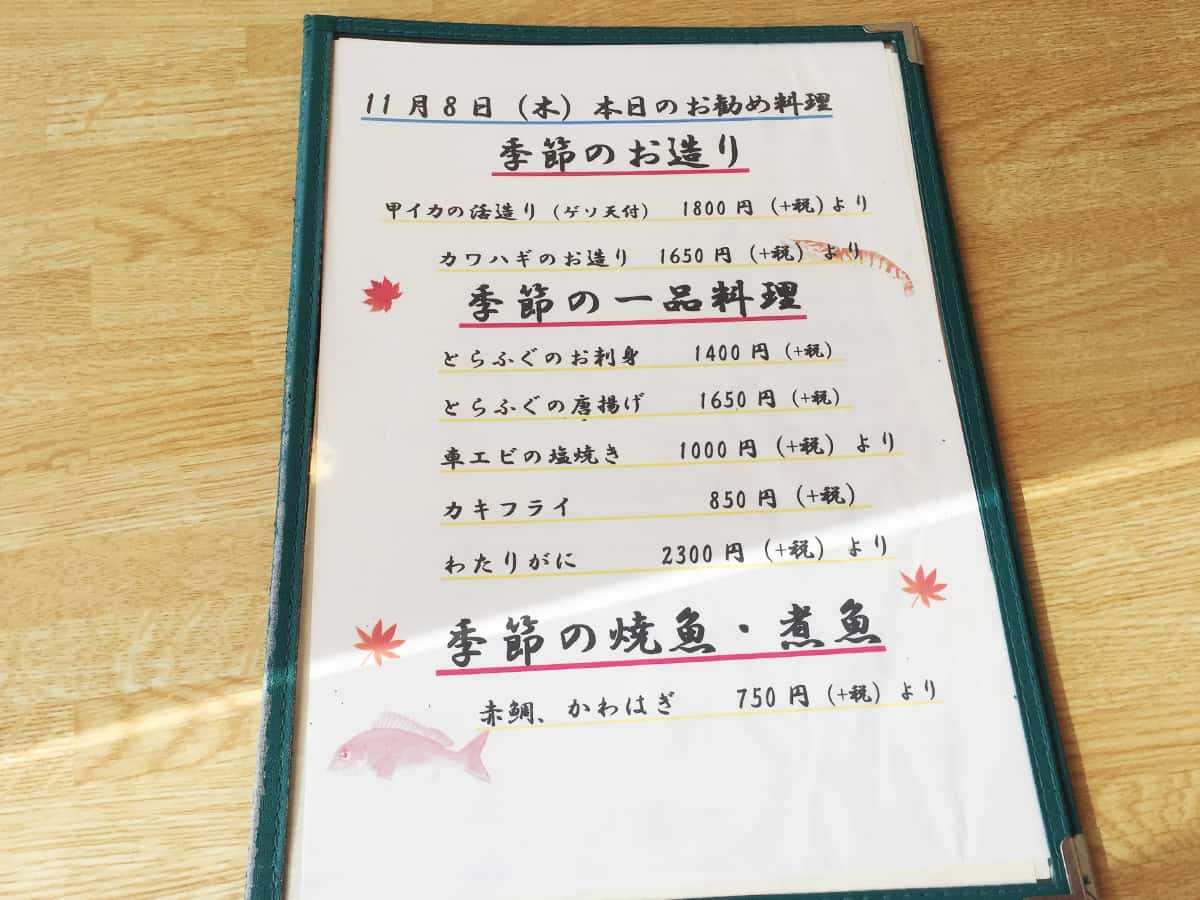 11月8日(木)本日のお勧め料理
季節のお造り
甲イカの活造り(ゲソ天付) 1800円(+税)より
カワハギのお造り 1650円(+税)より
季節の一品料理
とらふぐのお刺身 1400円(+税)
とらふぐの唐揚げ 1650円(+税)
車エビの塩焼き 1000円(+税)より
カキフライ 850円(+税)
わたりがに 2300円(+税)より
季節の焼魚・煮魚
赤鯛、かわはぎ 750円(+税)より